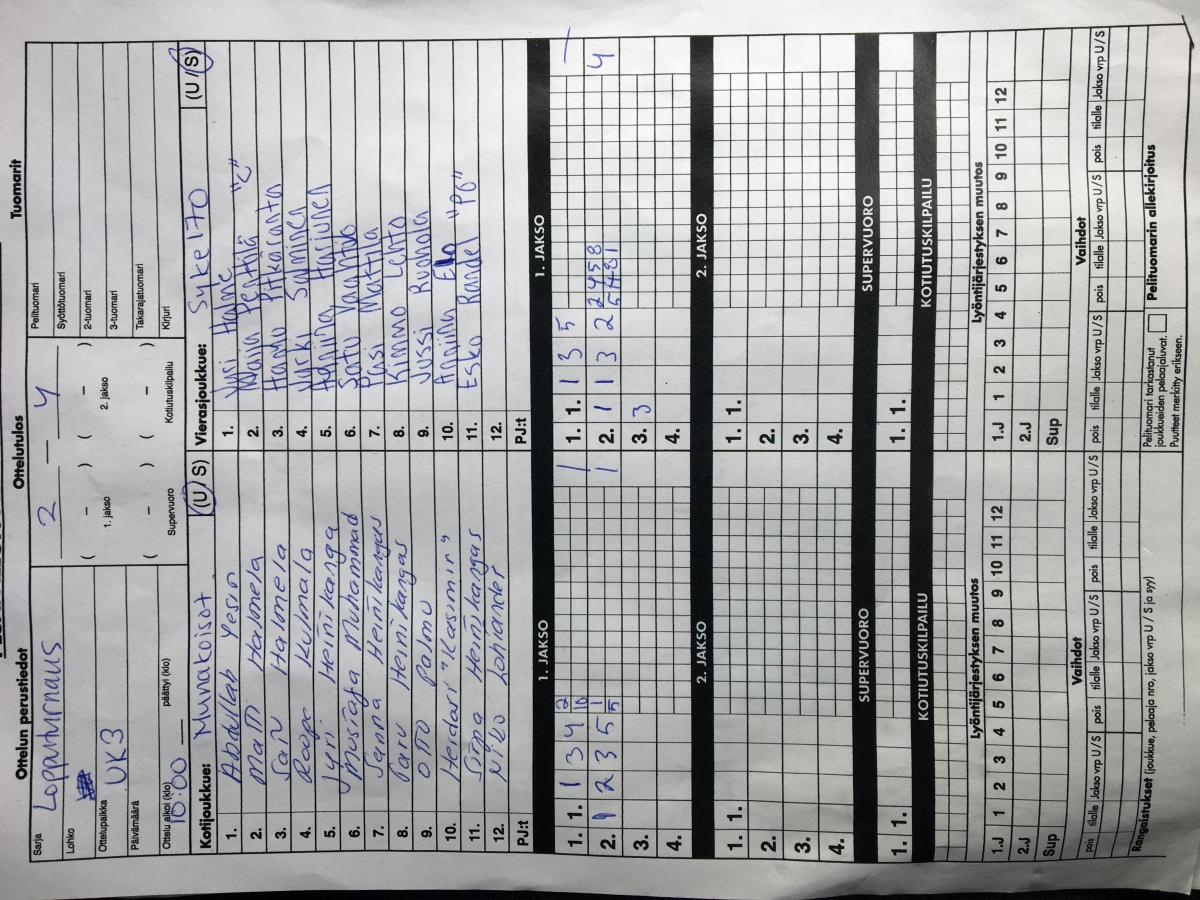 Ottelun perustiedot
Ottelutulos
Tuomarit
Sarja Lopputurnaus
2 – 4
Pelituomari
Lohko
Syöttötuomari
Ottelupaikka UK3
( – ) ( – )
1. jakso 2. jakso
2-tuomari
3-tuomari
Päivämäärä
( – ) ( – )
Takarajatuomari
Ottelu alkoi (klo) 10:00 päättyi (klo)
Supervuoro Kotiutuskilpailu
Kirjuri
Kotijoukkue: Munnakoisot (U/S)
1. Abdullah Yesin
2. Matti Halmela
3. Satu Halmela
4. Roope Kulmala
5. Jyri Heinikanga
6. Mustafa Muhammad
7. Sanna Heinikangas
8. Paru Heinikangas
9. Otto Palmu
10. Heidari "Kassimir"
11. Sirpa Heinikangas
12. Niko Lohiander
PJ:t
Vierasjoukkue: Sykeltö (U/S)
1. Jussi Halme
2. Maija Penttilä "C"
3. Hannu Pitkäranta
4. Jyrki Salminen
5. Harjunen
6. Satu
7. Passi Mattila
8. Kimmo Lehto
9. Jussi Ruonala
10. Anniina
11. Esko Randel
12.
PJ:t
1. JAKSO 1. JAKSO
1. 1. 1 3 4 2 10 1
2. 1 2 3 5 1 5 1
3.
4.
1. 1. 1 3 5 –
2. 1 1 3 2 2 4 5 8 4
3. 3
4.
2. JAKSO 2. JAKSO
1. 1. 1. 1.
2. 2.
3. 3.
4. 4.
SUPERVUORO SUPERVUORO
1. 1. 1. 1.
KOTIUTUSKILPAILU KOTIUTUSKILPAILU
Lyöntijärjestyksen muutos Lyöntijärjestyksen muutos
1.J 1 2 3 4 5 6 7 8 9 10 11 12 1.J 1 2 3 4 5 6 7 8 9 10 11 12
2.J 2.J
Sup Sup
Vaihdot Vaihdot
pois tilalle Jakso vrp U/S pois tilalle Jakso vrp U/S pois tilalle Jakso vrp U/S pois tilalle Jakso vrp U/S pois tilalle Jakso vrp U/S pois tilalle Jakso vrp U/S
Rangaistukset (joukkue, pelaaja nro, jakso vrp U / S ja syy)
Pelituomari tarkastanut
joukkueiden pelaajaluvat.
Puutteet merkitty erikseen.
Pelituomarin allekirjoitus